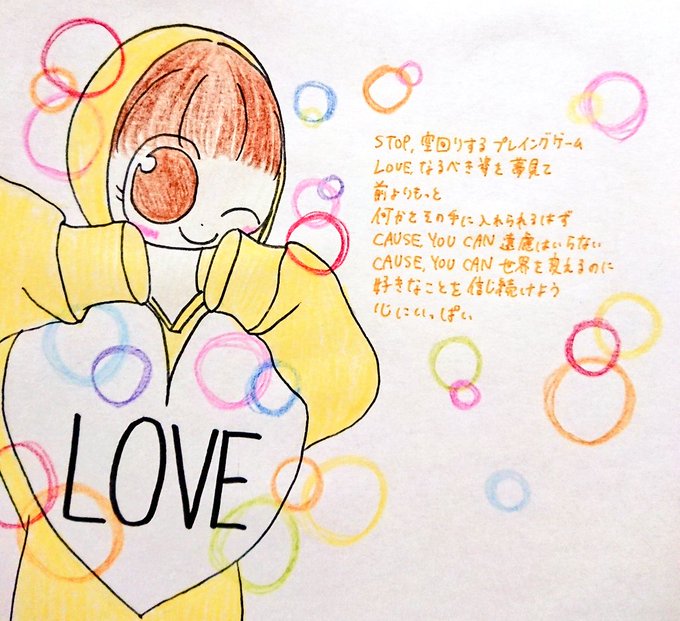 STOP, 空回りする プレイングゲーム
LOVE, なるべき姿を 夢見て
前よりもっと
何かとその手に入れられるはず
CAUSE, YOU CAN 遠慮はいらない
CAUSE, YOU CAN 世界を変えるのに
好きなことを 信じ続けよう
心にいっぱい
LOVE